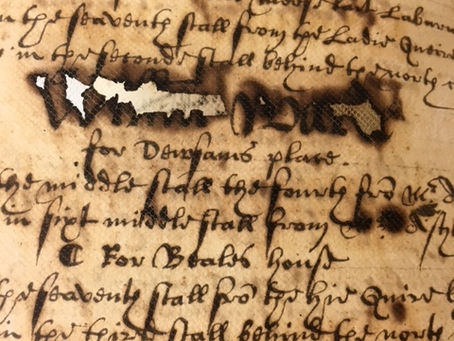 the seaventh stall from the Ladie Queire
in the seconde stall behind the north
for Dewsams place.
the middle stall the fourth frō
in sixt middle stall from
¶ For Beales house
the seaventh stall frō the hie Quire
in the third stall behind the north